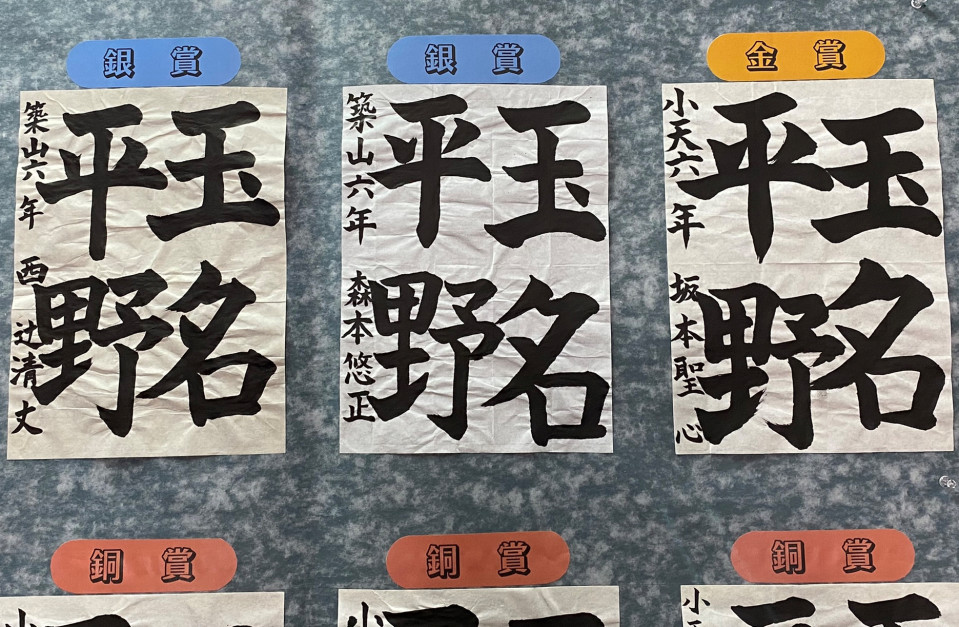 金賞
玉名
平野
小天六年 坂本聖心
銀賞
玉名
平野
築山六年 森本悠正
銀賞
玉名
平野
築山六年 西辻清丈
銅賞
銅賞
銅賞